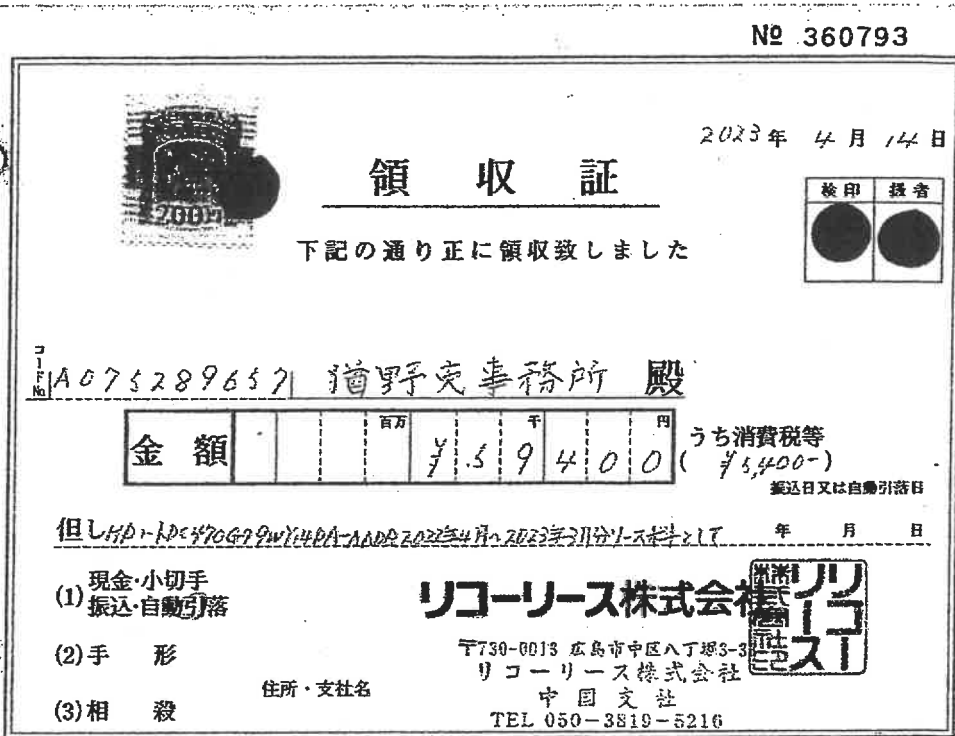 № 360793
2023年 4月 14日
領収証
検印 扱者
200円
下記の通り正に領収致しました
コードNo A075289657 猶野克事務所 殿
金額 百万 千 円 ¥59400
うち消費税等
(¥5,400-)
振込日又は自動引落日
但し 2022年4月〜2023年3月分リース料として 年 月 日
(1) 現金・小切手
振込・自動引落
(2) 手形
(3) 相殺
住所・支社名
リコーリース株式会社
〒730-0013 広島市中区八丁堀3-3
リコーリース株式会社
中国支社
TEL 050-3819-5216
リコーリース